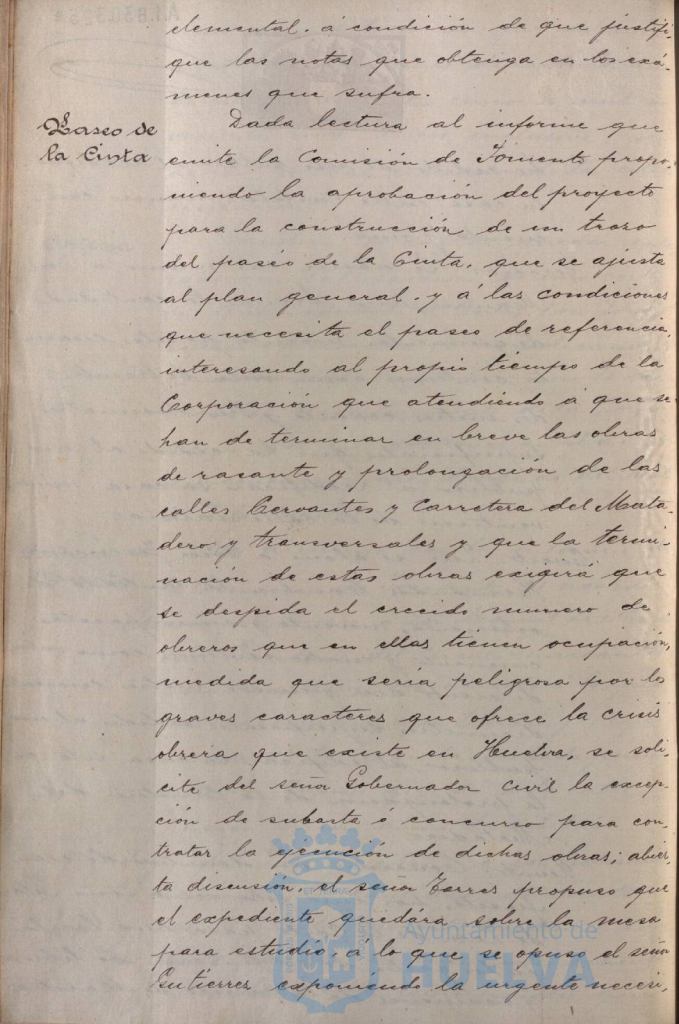 elemental. á condición de que justifi,
que las notas que obtenga en los exá,
menes que sufra.
Paseo de
la Cinta
Dada lectura al informe que
emite la Comisión de Fomento propo,
niendo la aprobación del proyecto
para la construcción de un trozo
del paseo de la Cinta, que se ajusta
al plan general, y á las condiciones
que necesita el paseo de referencia,
interesando al propio tiempo de la
Corporación que atendiendo á que se
han de terminar en breve las obras
de rasante y prolongación de las
calles Cervantes y Carretera del Mata,
dero y transversales y que la termi,
nación de estas obras exigirá que
se despida el crecido numero de
obreros que en ellas tienen ocupación,
medida que sería peligrosa por los
graves caracteres que ofrece la crisis
obrera que existe en Huelva, se soli,
cite del señor Gobernador Civil la excep,
ción de subasta ó concurso para con,
tratar la ejecución de dichas obras; abier,
ta discusión, el señor Torres propuso que
el expediente quedára sobre la mesa
para estudio, á lo que se opuso el señor
Gutierrez exponiendo la urgente neceri,
Ayuntamiento de
HUELVA